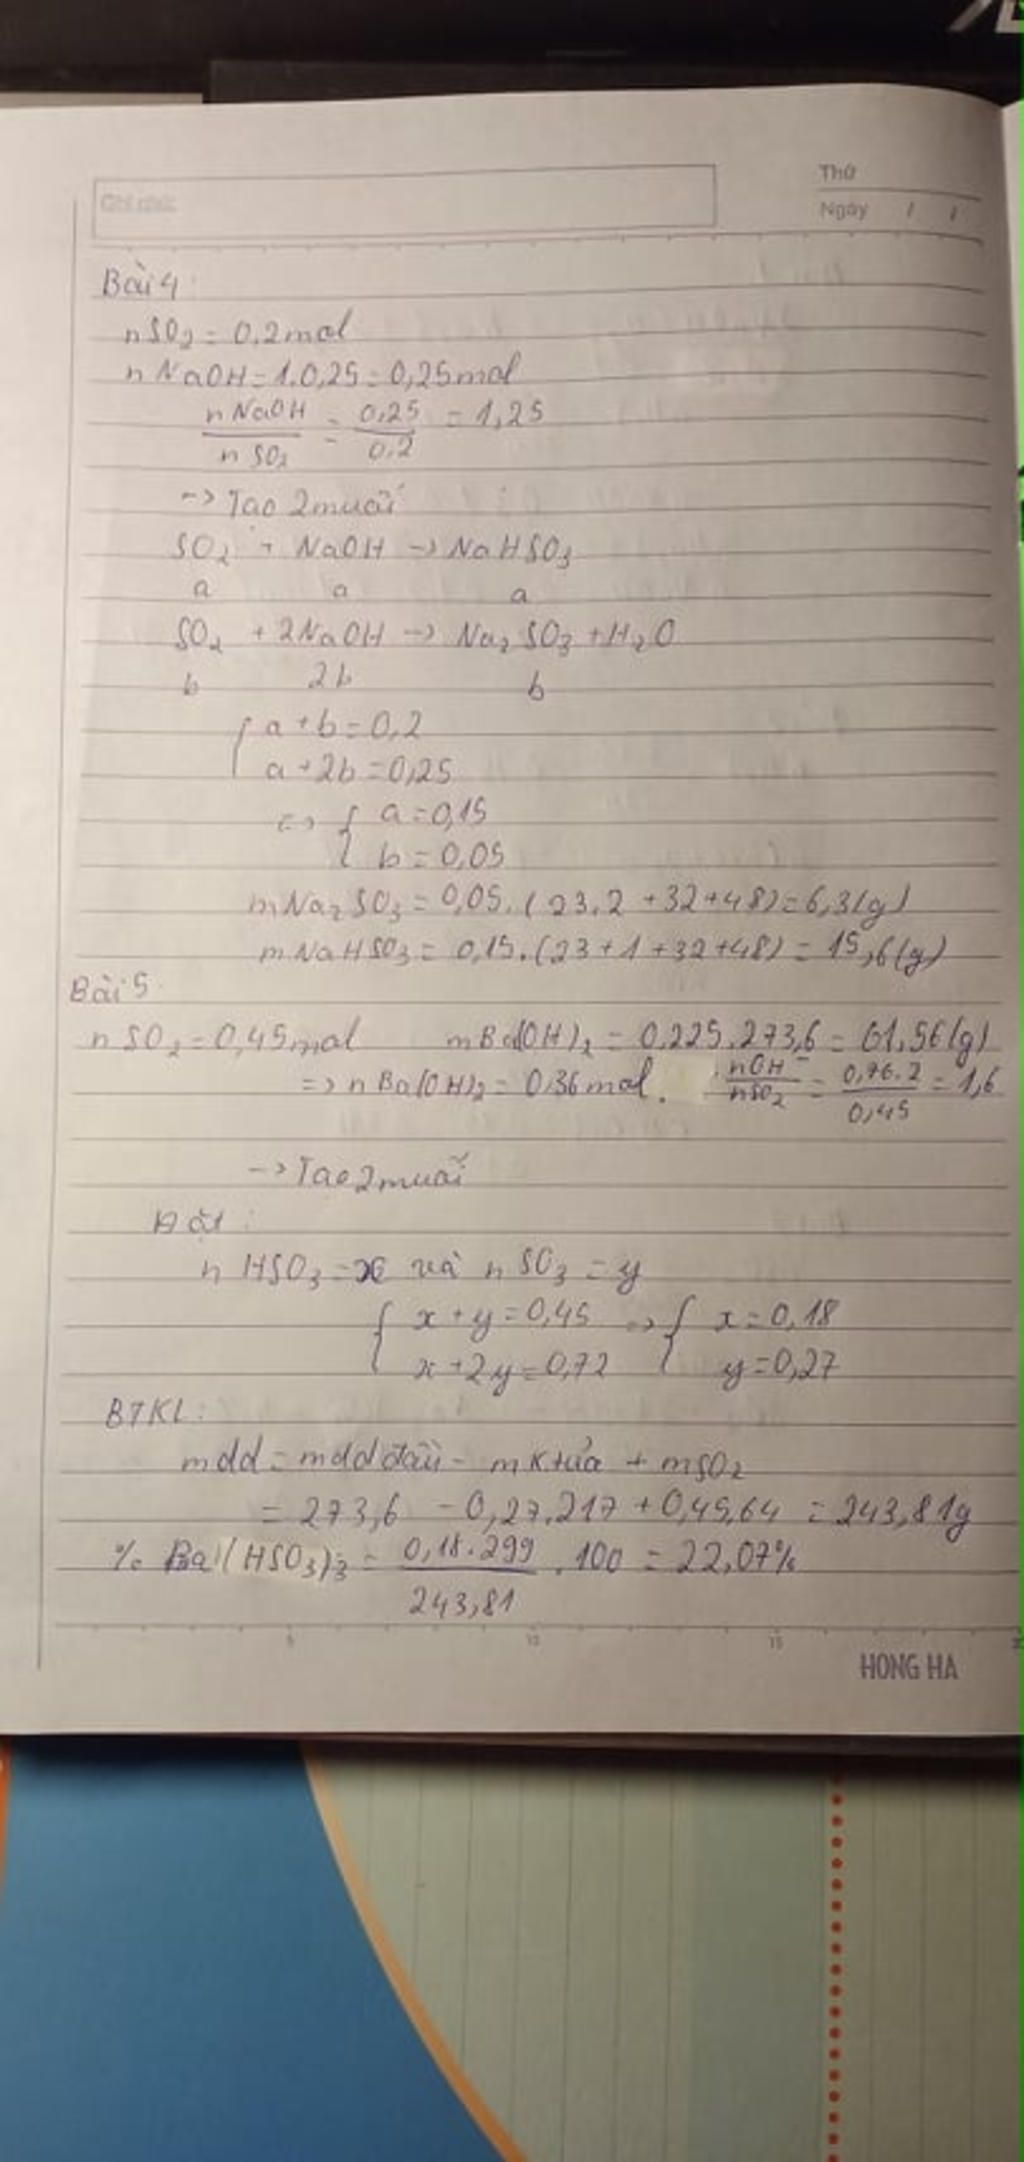 Ghi chú:
Thứ
Ngày / /
Bài 4:
nSO₂ = 0,2 mol
nNaOH = 1.0,25 = 0,25 mol
nNaOH / nSO₂ = 0,25 / 0,2 = 1,25
-> Tạo 2 muối
SO₂ + NaOH -> NaHSO₃
a a a
SO₂ + 2NaOH -> Na₂SO₃ + H₂O
b 2b b
{ a + b = 0,2
a + 2b = 0,25
<=> { a = 0,15
b = 0,05
mNa₂SO₃ = 0,05.(23.2 + 32 + 48) = 6,3(g)
mNaHSO₃ = 0,15.(23 + 1 + 32 + 48) = 15,6(g)
Bài 5:
nSO₂ = 0,45 mol mBa(OH)₂ = 0,225.273,6 = 61,56(g)
=> nBa(OH)₂ = 0,36 mol. nOH⁻ / nSO₂ = 0,36.2 / 0,45 = 1,6
-> Tạo 2 muối
Đặt:
nHSO₃ = x và nSO₃ = y
{ x + y = 0,45 => { x = 0,18
x + 2y = 0,72 y = 0,27
BTKL:
mdd = mdd đầu - mktủa + mSO₂
= 273,6 - 0,27.217 + 0,45.64 = 243,81g
% Ba(HSO₃)₂ = 0,18.299 / 243,81 . 100 = 22,07%
5 10 15 20
HONG HA